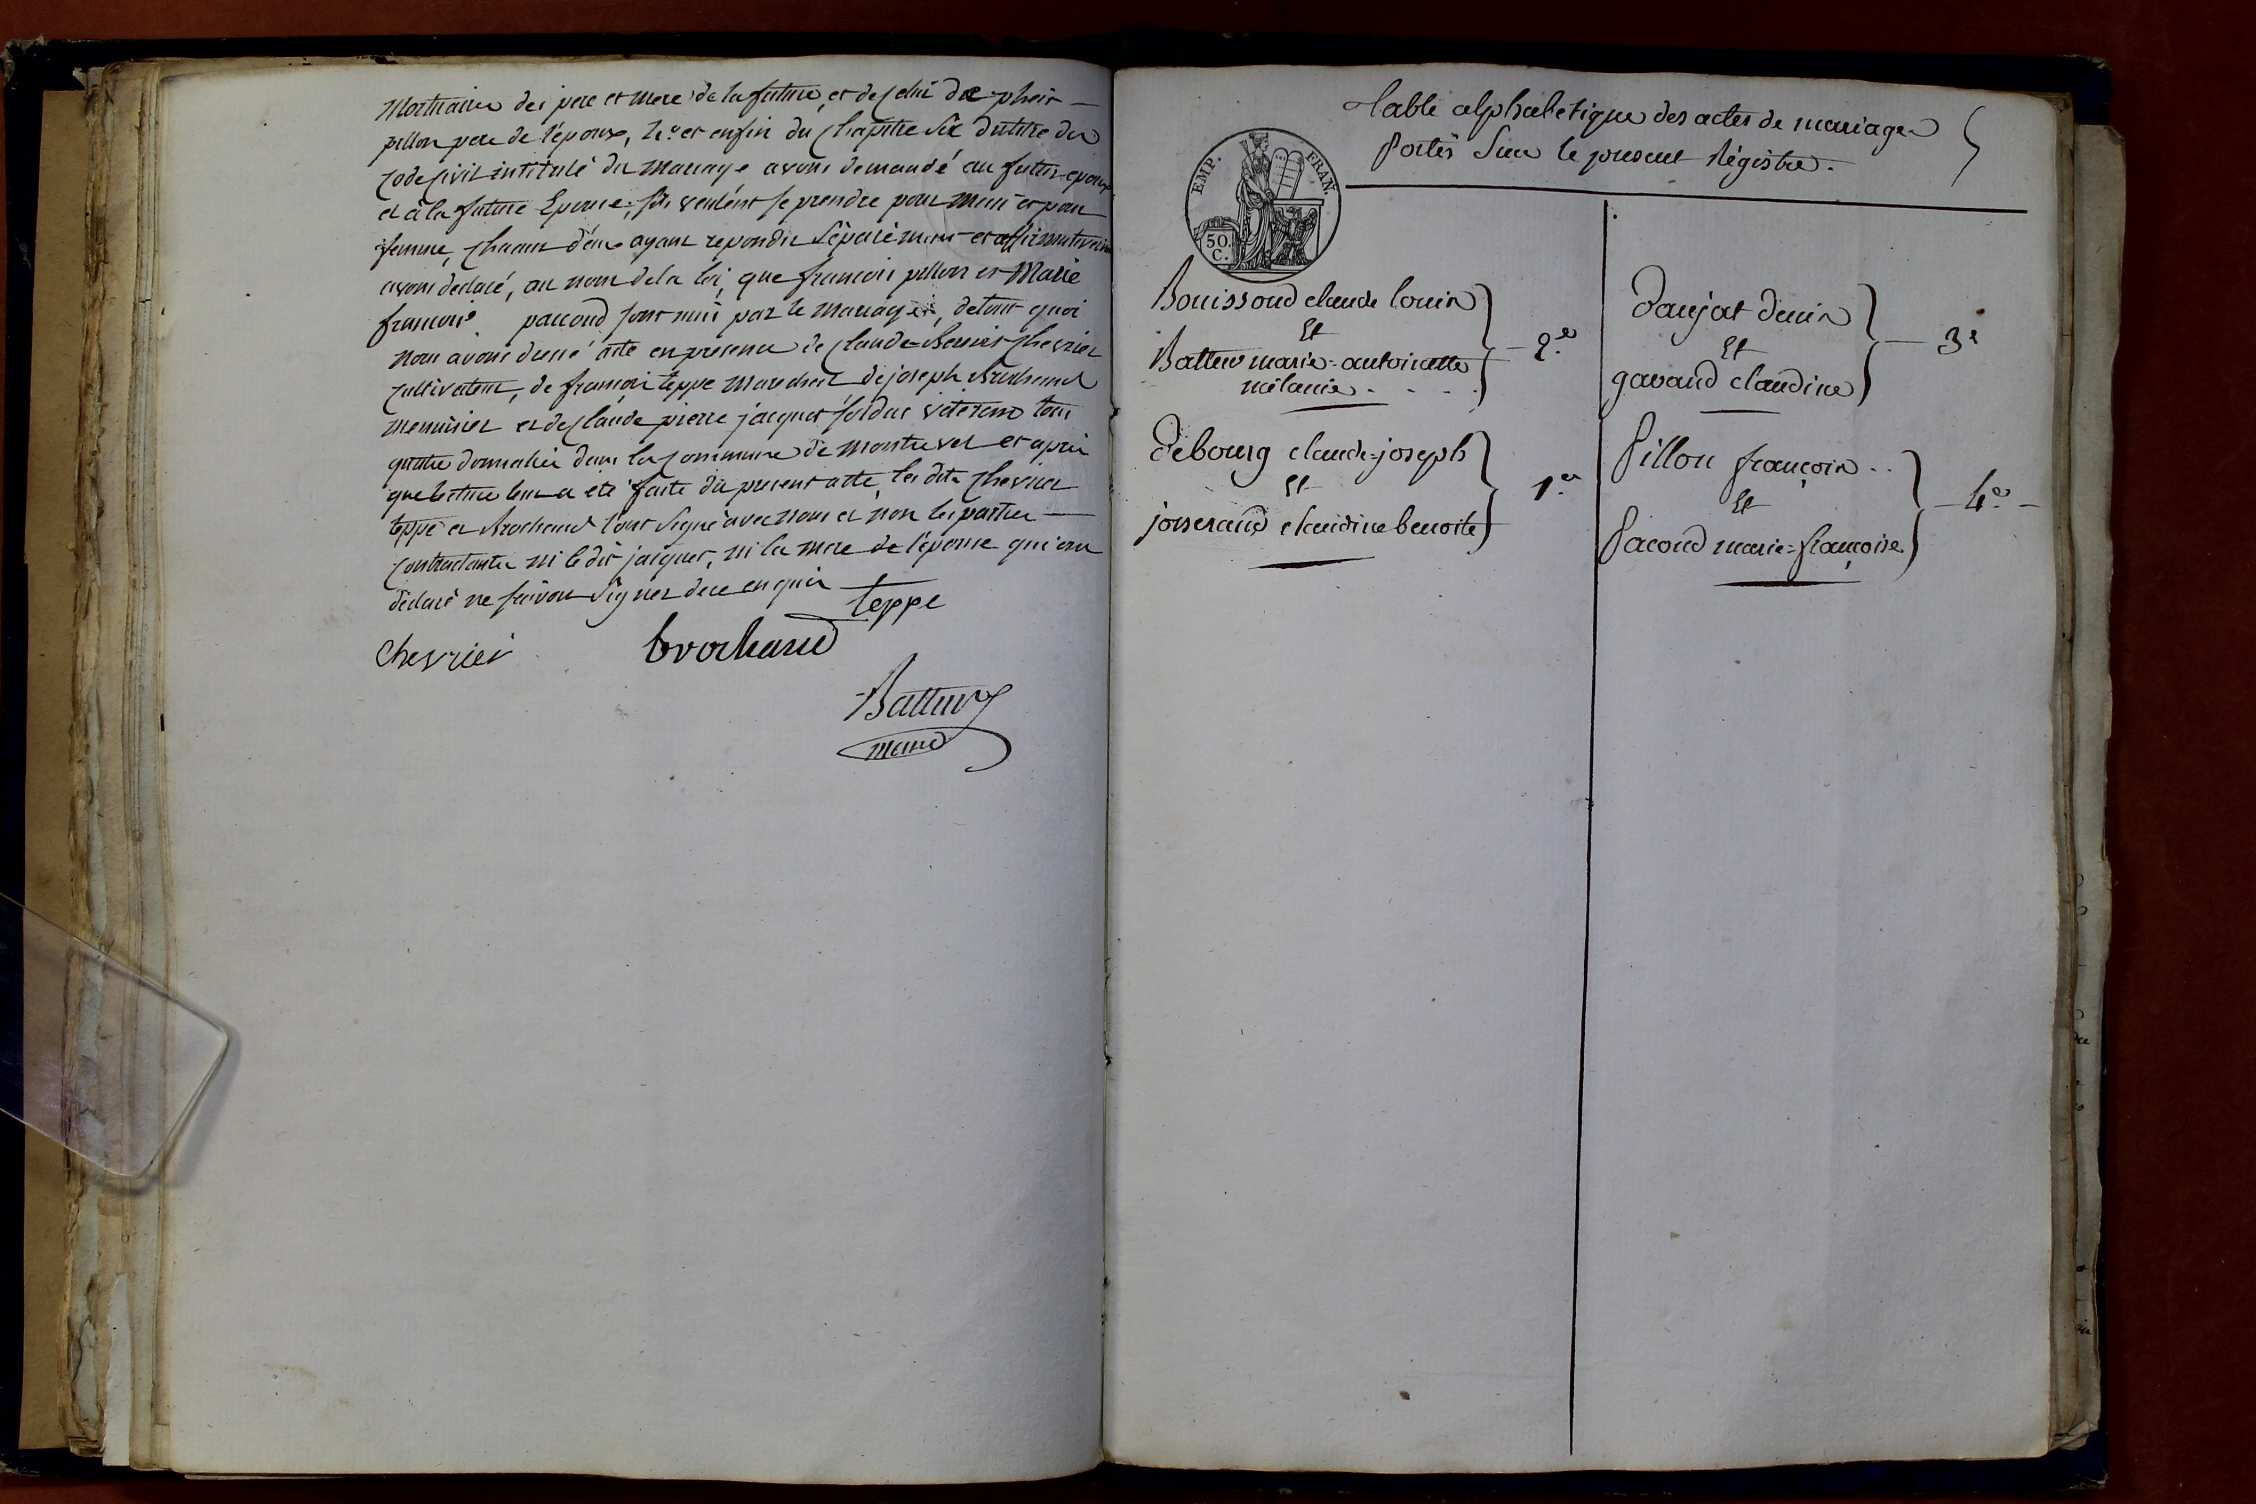 Mortuaire des pere et mere de la future, et de celui de pheir
pillon pere de l'époux, 4.e et enfin du chapitre six du titre du
code civil intitulé du Mariage avons demandé au futur epoux
et à la future Epouse, s'ils veulent se prendre pour Mari et pour
femme, chacun d'eux ayant repondu séparément et affirmativement
avons declaré, au nom de la loi, que francois pillon et Marie
francoise paccoud sont unis par le mariage, de tout quoi
nous avons dressé acte en présence de claude Benoit Chevrier
cultivateur, de francois teppe marechal, de joseph Brochand
menuisier et de claude pierre jacquet soldat veteran tous
quatre domiciliés dans la commune de Montrevel et après
que lecture leur a eté faite du present acte, les dits chevrier
teppe et Brochand l'ont signé avec nous et non les parties
contractantes ni le dit jacquet, ni la mere de l'épouse qui ont
déclaré ne savoir signer de ce enquis
teppe
chevrier
brochand
Battur
maire
Table alphabétique des actes de mariages
Portés Sur le présent Régistre.
EMP. FRAN.
50. C.
Bouissoud claude louis
Et
Batteur marie-antoinette
mélanie
2.e
Debourg claude-joseph
Et
josserand claudine benoite
1.er
Daujat denis
Et
gavand claudine
3.e
Pillon françois
Et
Pacoud marie-françoise
4.e